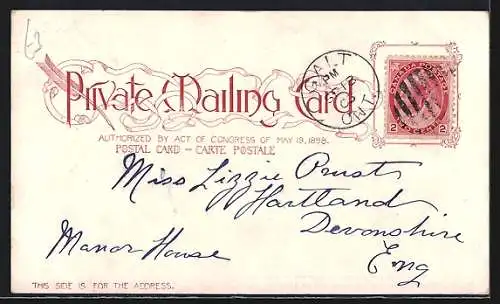 Private Mailing Card
AUTHORIZED BY ACT OF CONGRESS OF MAY 19, 1898.
POSTAL CARD – CARTE POSTALE
GALT
PM
ONT.
2
2
Miss Lizzie Prust
Hartland
Devonshire
Manor House
Eng
THIS SIDE IS FOR THE ADDRESS.